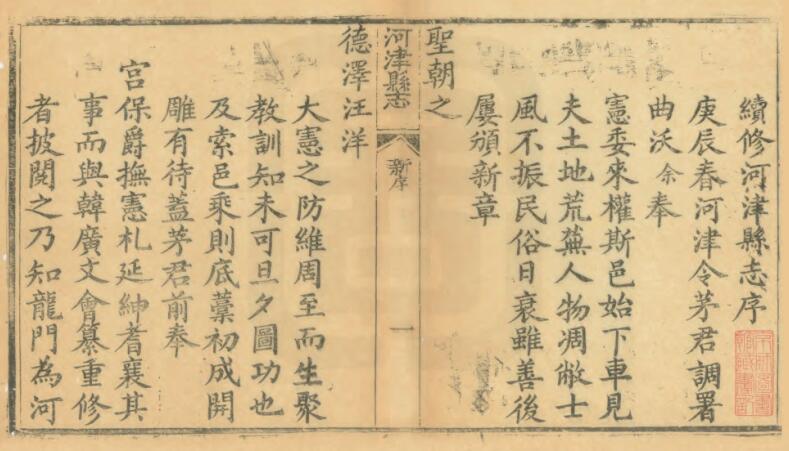 續修河津縣志序
庚辰春河津令茅君調署
曲沃余奉
憲委來權斯邑始下車見
夫土地荒蕪人物凋敝士
風不振民俗日衰雖善後
屢頒新章
聖朝之
河津縣志
新序
一
德澤汪洋
大憲之防維周至而生聚
教訓知未可旦夕圖功也
及索邑乘則底藁初成開
雕有待蓋茅君前奉
宮保爵撫憲札延紳耆襄其
事而與韓廣文會纂重修
者披閱之乃知龍門為河